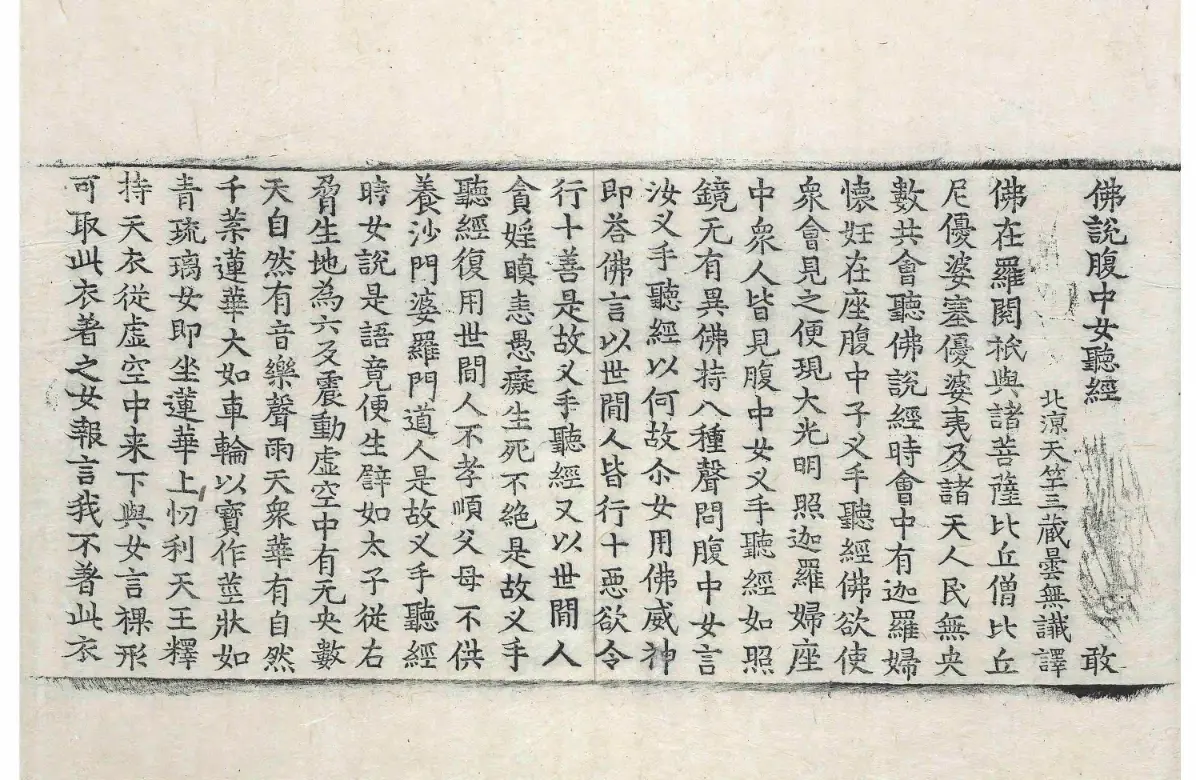 佛說腹中女聽經 敢
北涼天竺三藏曇無讖譯
佛在羅閱祇與諸菩薩比丘僧比丘
尼優婆塞優婆夷及諸天人民無央
數共會聽佛說經時會中有迦羅婦
懷妊在座腹中子叉手聽經佛欲使
衆會見之便現大光明照迦羅婦座
中衆人皆見腹中女叉手聽經如照
鏡无有異佛持八種聲問腹中女言
汝叉手聽經以何故尒女用佛威神
即荅佛言以世間人皆行十惡欲令
行十善是故叉手聽經又以世間人
貪婬瞋恚愚癡生死不絶是故叉手
聽經復用世間人不孝順父母不供
養沙門婆羅門道人是故叉手聽經
時女說是語竟便生譬如太子從右
脅生地為六反震動虛空中有无央數
天自然有音樂聲雨天衆華有自然
千葉蓮華大如車輪以寶作莖狀如
青琉璃女即坐蓮華上忉利天王釋
持天衣從虛空中来下與女言裸形
可取此衣著之女報言我不著此衣